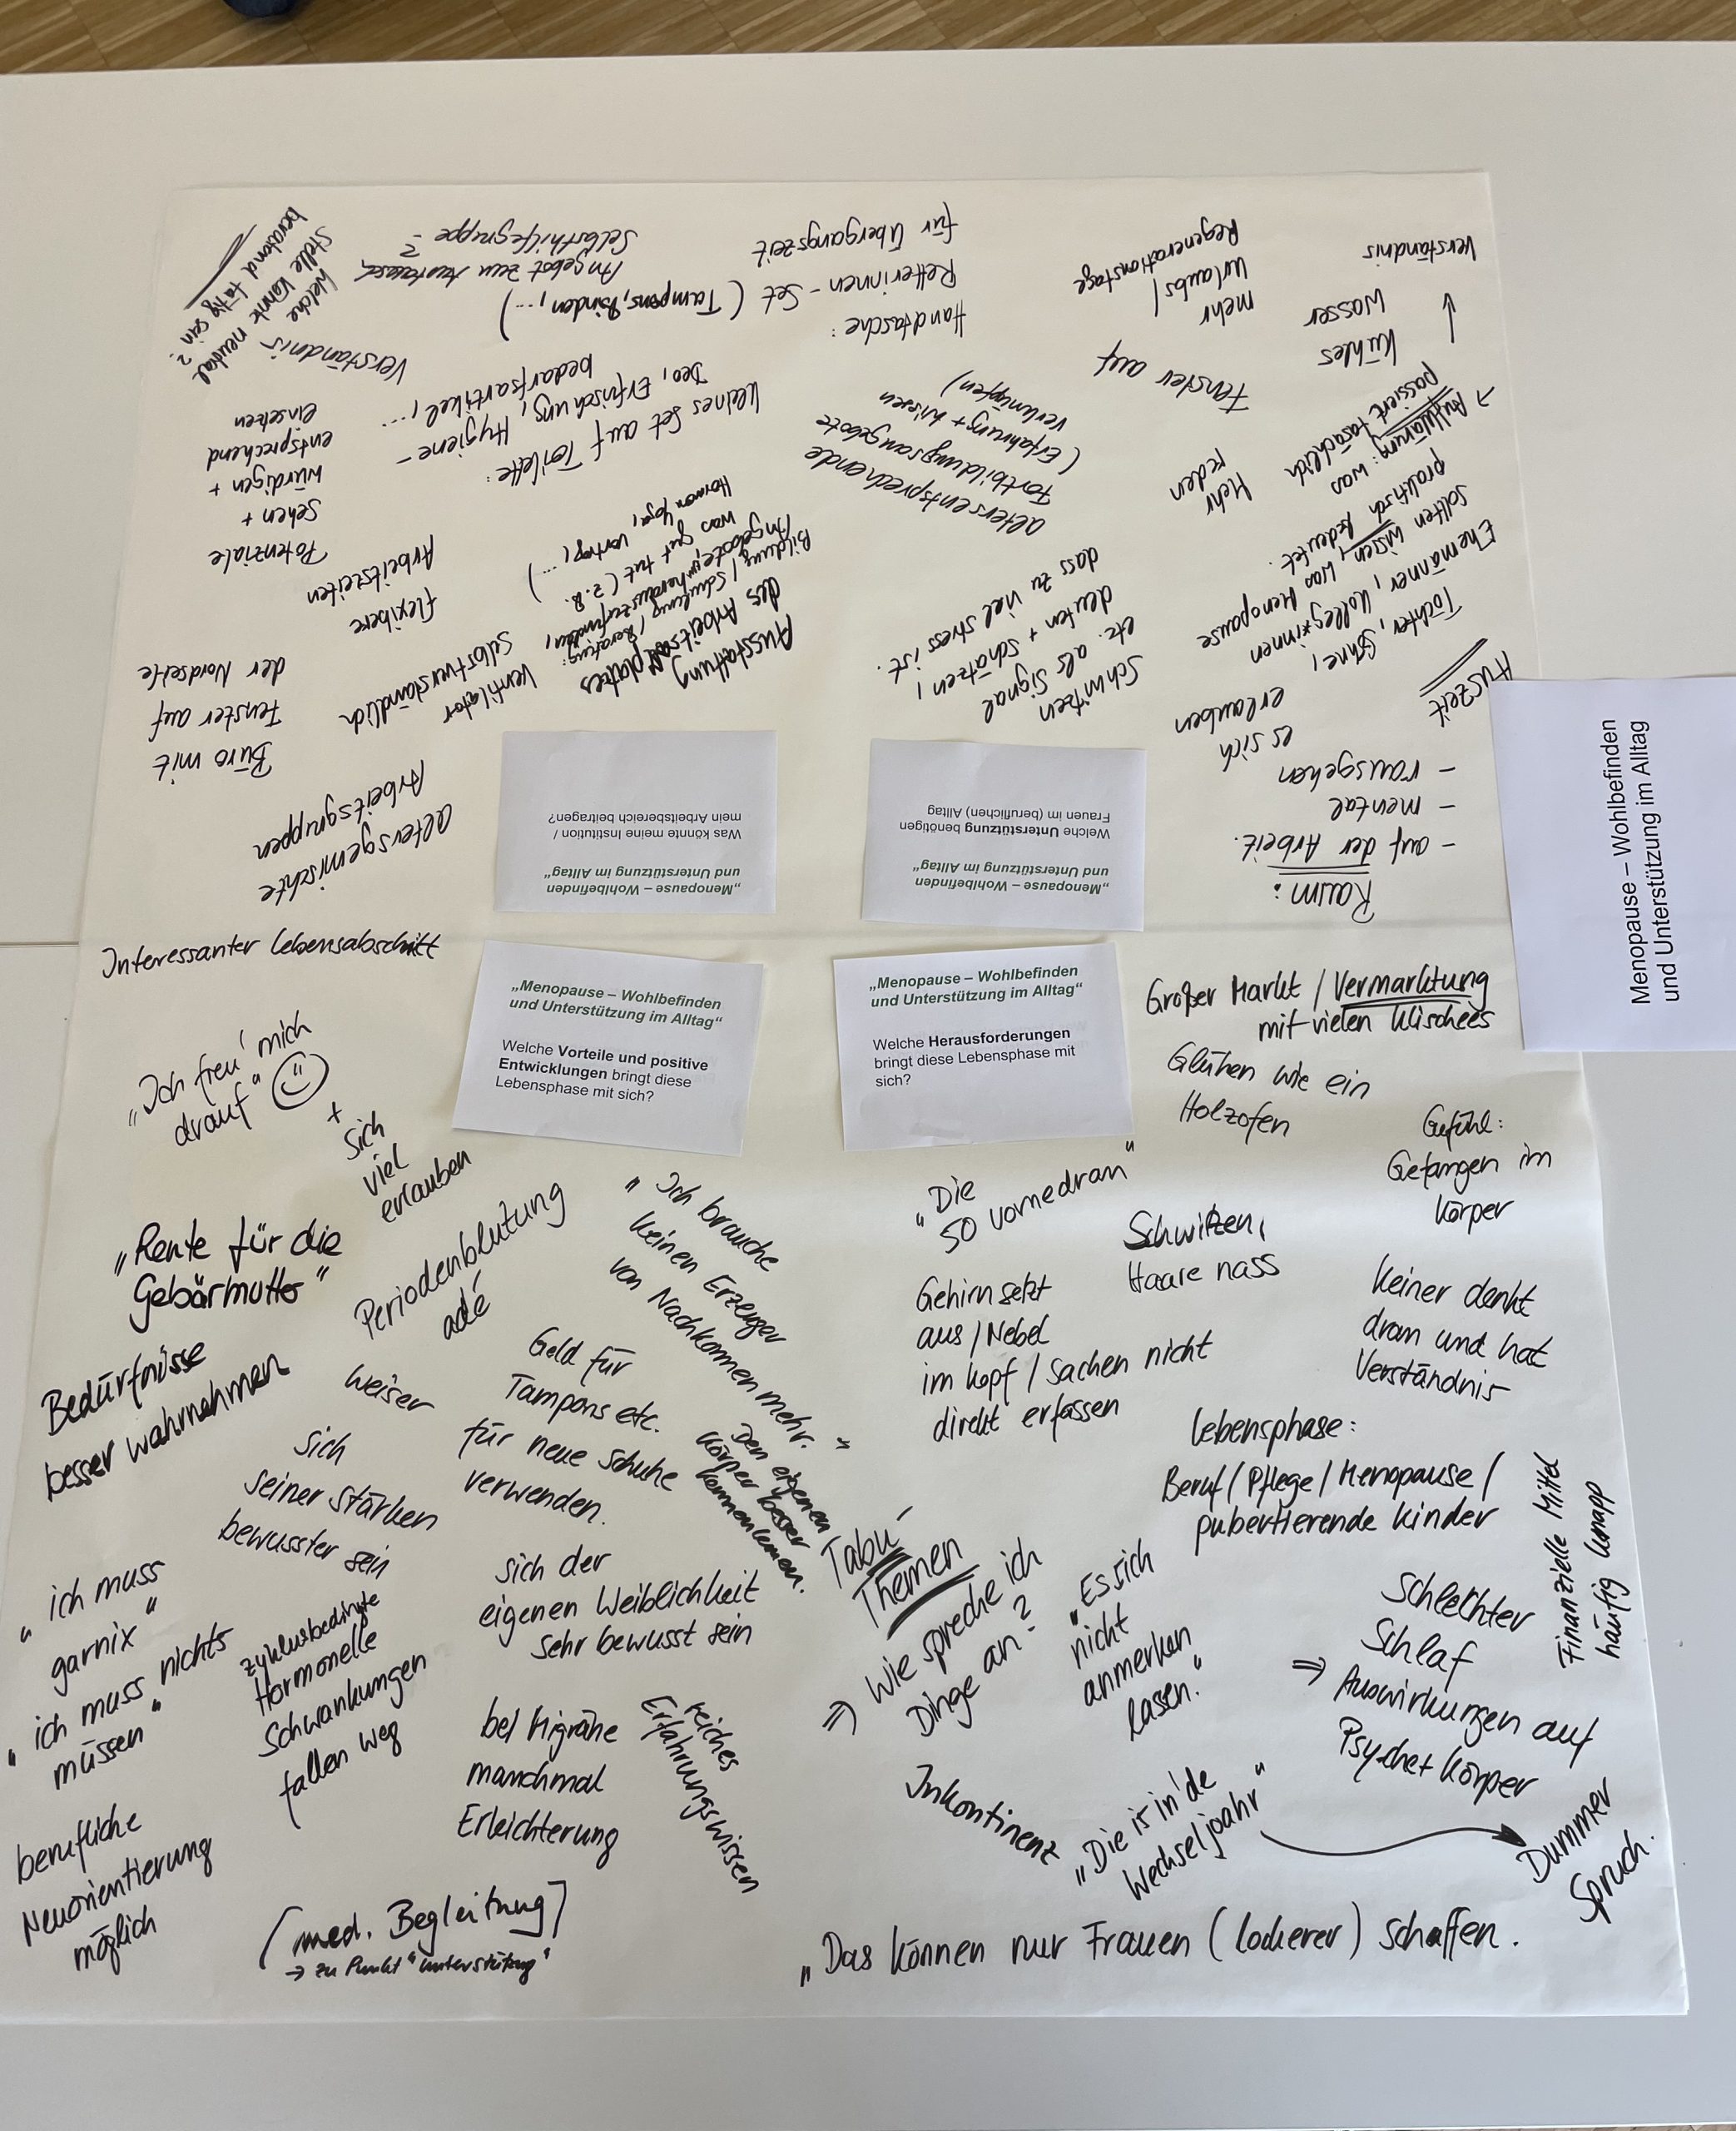 Menopause – Wohlbefinden
und Unterstützung im Alltag
„Menopause – Wohlbefinden
und Unterstützung im Alltag“
Welche Vorteile und positive
Entwicklungen bringt diese
Lebensphase mit sich?
Interessanter Lebensabschnitt
„Ich freu' mich
drauf“
+
sich
viel
erlauben
„Rente für die
Gebärmutter“
Periodenblutung
adé
„Ich brauche
keinen Erzeuger
von Nachkommen mehr.“
Bedürfnisse
besser wahrnehmen
weiser
Geld für
Tampons etc.
für neue Schuhe
verwenden.
Den eigenen
Körper besser
kennenlernen.
sich
seiner Stärken
bewusster sein
„ich muss
garnix“
„ich muss nichts
müssen“
zyklusbedingte
Hormonelle
Schwankungen
fallen weg
sich der
eigenen Weiblichkeit
sehr bewusst sein
bei Migräne
manchmal
Erleichterung
reiches
Erfahrungswissen
berufliche
Neuorientierung
möglich
(med. Begleitung)
→ zu Punkt "Unterstützung"
„Menopause – Wohlbefinden
und Unterstützung im Alltag“
Welche Herausforderungen
bringt diese Lebensphase mit
sich?
Großer Markt / Vermarktung
mit vielen Klischees
Glühen wie ein
Holzofen
Gefühl:
Gefangen im
Körper
„Die
50 vornedran“
Schwitzen,
Haare nass
Gehirn setzt
aus / Nebel
im Kopf / Sachen nicht
direkt erfassen
Keiner denkt
dran und hat
Verständnis
Lebensphase:
Beruf / Pflege / Menopause /
pubertierende Kinder
Finanzielle Mittel
häufig knapp
Tabu-
Themen
⇒ Wie spreche ich
Dinge an?
„Es sich
nicht
anmerken
lasen.“
Schlechter
Schlaf
⇒ Auswirkungen auf
Psyche + Körper
Inkontinenz
„Die is in'de
Wechseljoahr“
Dummer
Spruch.
„Das können nur Frauen (lockerer) schaffen.
„Menopause – Wohlbefinden
und Unterstützung im Alltag“
Welche Unterstützung benötigen
Frauen im (beruflichen) Alltag
Raum:
- auf der Arbeit.
- mental
- rausgehen
es sich
erlauben
Auszeit
Schwitzen
etc. als Signal
deuten + schätzen,
dass zu viel Stress ist.
Töchter, Söhne,
Ehemänner, Kolleg*innen
sollten wissen, was Menopause
praktisch bedeutet.
→ Aufklärung: was
passiert tatsächlich
Mehr
reden
altersentsprechende
Fortbildungsangebote
(Erfahrung + Wissen
verknüpfen)
Fenster auf
Kühles
Wasser
↓
Verständnis
mehr
Urlaubs/
Regenerationstage
Handtasche:
Retterinnen-Set (Tampons, Binden, ...)
für Übergangszeit
„Menopause – Wohlbefinden
und Unterstützung im Alltag“
Was könnte meine Institution /
mein Arbeitsbereich beitragen?
altersgemischte
Arbeitsgruppen
Büro mit
Fenster auf
der Nordseite
Ausstattung
des Arbeitsplatzes
Ventilator
selbstverständlich
Bildung / Schulung / Beratung:
Angebote, um herauszufinden,
was gut tut (z.B.
Hormonyoga, Vortrag, ...)
flexibere
Arbeitszeiten
Potenziale
sehen +
würdigen +
entsprechend
einsetzen
kleines Set auf Toilette:
Deo, Erfrischung, Hygiene-
bedarfsartikel, ...
Verständnis
Angebot zum Austausch
Selbsthilfegruppe?
Welche neutrale
Stelle könnte
beratend tätig sein?